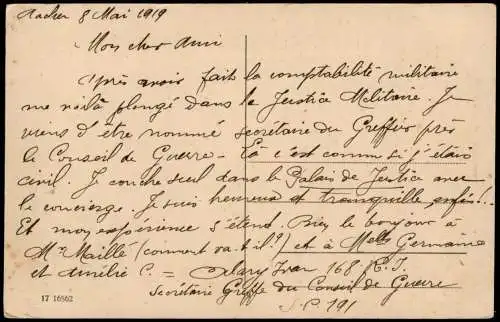 Aachen 8 Mai 1919
Mon cher Ami
Après avoir fait la comptabilité militaire
me voilà plongé dans la Justice Militaire. Je
viens d'être nommé secrétaire du Greffier près
le Conseil de Guerre - Là c'est comme si j'étais
civil. Je couche seul dans le Palais de Justice avec
le concierge. Je suis heureux et tranquille enfin!..
Et mon expérience s'étend. Bien le bonjour à
Mr Maillé (comment va-t-il?) et à Melles Germaine
et Amélie C. = Jean 168 R.I.
Secrétaire Greffe du Conseil de Guerre
S.P. 191
17 16562